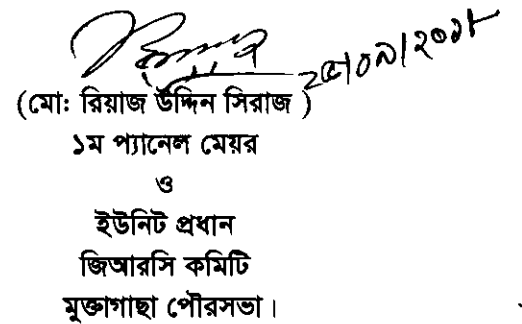 ২৫/০৯/২০১৮
(মো: রিয়াজ উদ্দিন সিরাজ )
১ম প্যানেল মেয়র
ও
ইউনিট প্রধান
জিআরসি কমিটি
মুক্তাগাছা পৌরসভা।